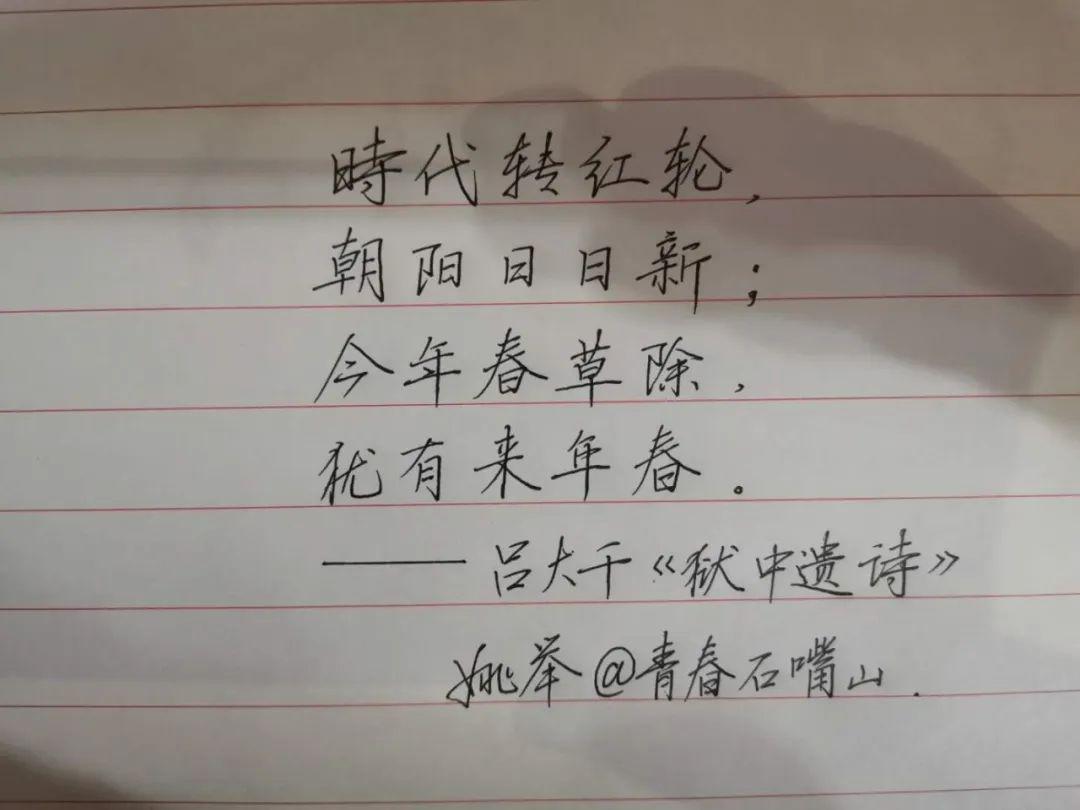 時代转红轮，
朝阳日日新；
今年春草除，
犹有来年春。
——吕大千《狱中遗诗》
姚举@青春石嘴山.